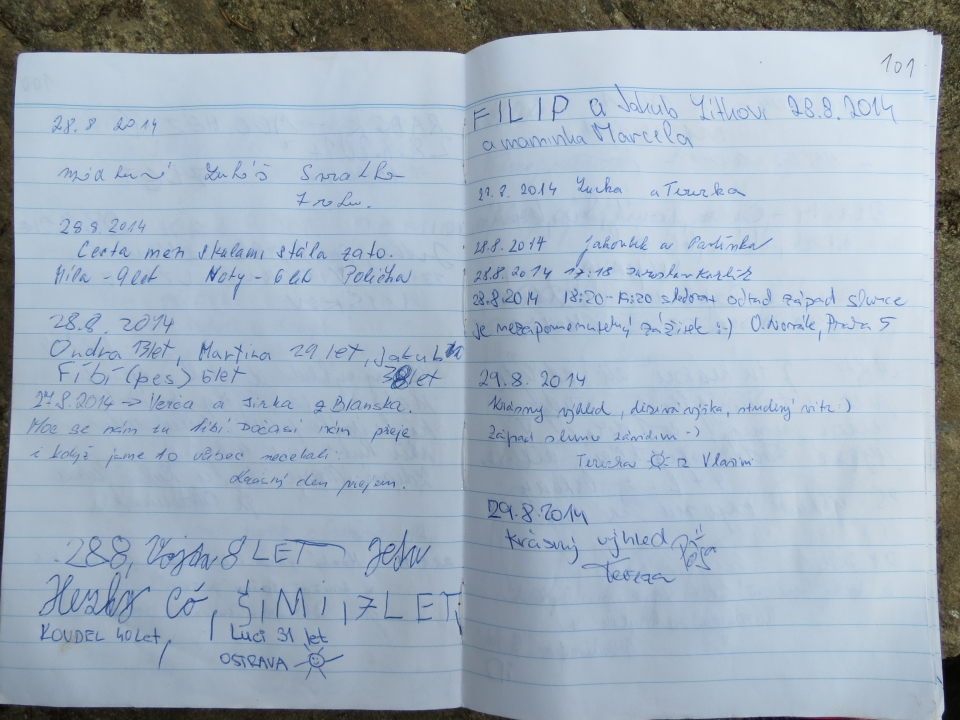 28.8 2014
Lukáš
7 roků.
28.8.2014
Cesta mezi skalami stála zato.
Míla - 9 let Naty - 6 let Polička
28.8. 2014
Ondra 13let, Martina 29 let, Jakub
Fíbí (pes) 6let 38let
27.8.2014 → Verča a Jirka z Blanska.
Moc se nám tu líbí. Počasí nám přeje
i když jsme to vůbec nečekali.
Krásný den přejem.
28.8, Vojta 8 LET
Hezky Có, ŠIMI, 7 LET,
KOUDEL 40 Let, Luci 31 let
OSTRAVA
101
FILIP a Jakub 28.8.2014
a maminka Marcela
28.8. 2014 Lucka a Terezka
28.8. 2014 a Pavlínka
28.8. 2014 17:18 Jaroslav
28.8.2014 18:20 - odtud západ slunce
je nezapomenutelný zážitek :-) O. Dvorák, Praha 5
29.8. 2014
Krásný výhled, výška, studený vítr :)
Západ slunce :-)
Terezka z Vlašimi
29.8.2014
Krásný výhled
Tereza